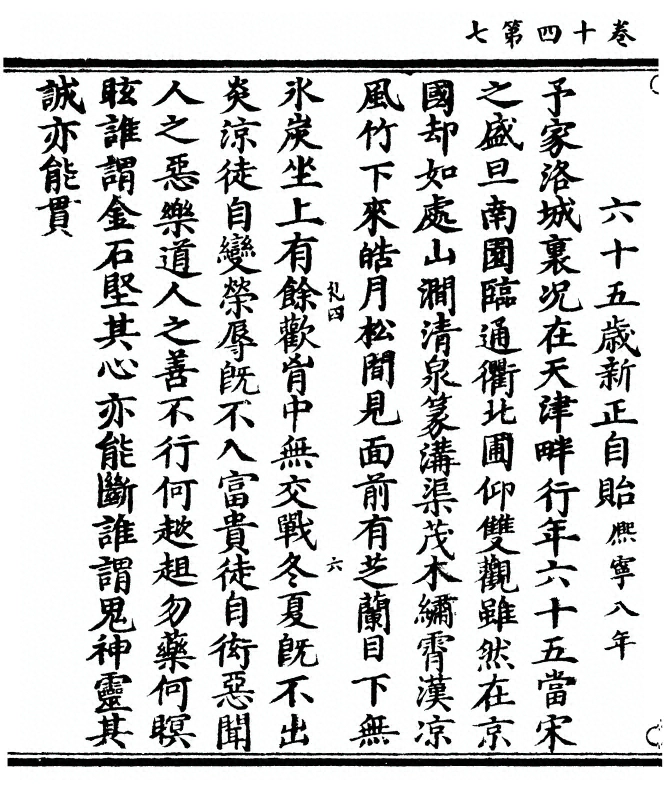 卷十四第七
六十五歲新正自貽熈寧八年
予家洛城裏况在天津畔行年六十五當宋
之盛旦南園臨通衢北圃仰雙觀雖然在京
國却如處山澗清泉篆溝渠茂木繡霄漢凉
風竹下來皓月松間見面前有芝蘭目下無
氷炭坐上有餘歡胷中無交戰冬夏既不出
炎凉徒自變榮辱既不入富貴徒自衒惡聞
人之惡樂道人之善不行何趑趄勿藥何暝
眩誰謂金石堅其心亦能斷誰謂鬼神靈其
誠亦能貫
礼四
六